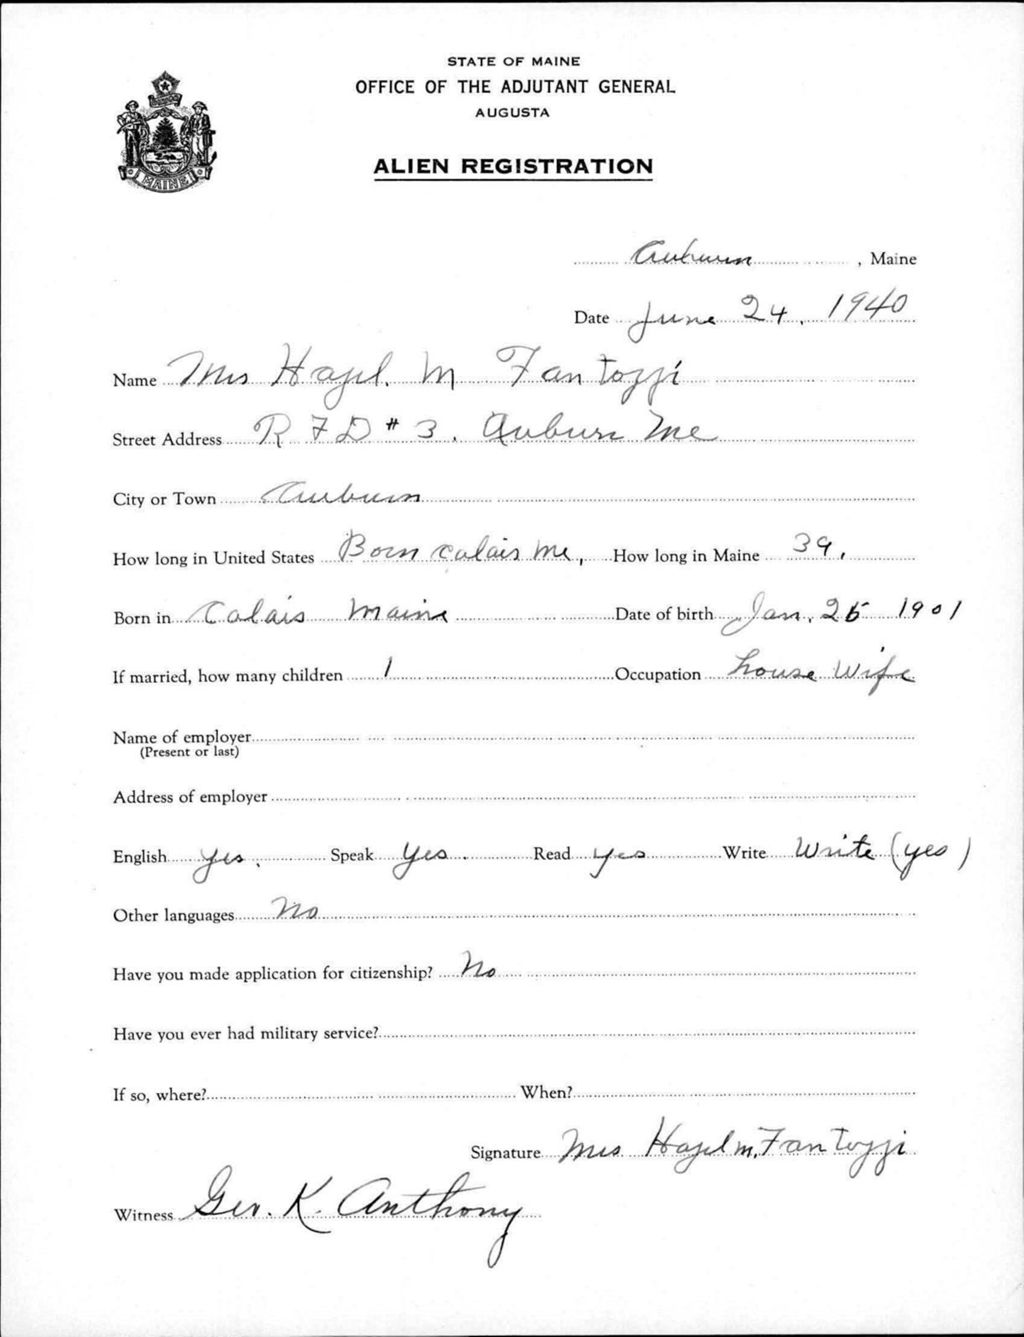 STATE OF MAINE
OFFICE OF THE ADJUTANT GENERAL
AUGUSTA
ALIEN REGISTRATION
MAINE
Auburn, Maine
Date June 24, 1940
Name Mrs Hazel. M Fantozzi
Street Address R F D # 3. Auburn Me
City or Town Auburn
How long in United States Born Calais Me, How long in Maine 39.
Born in Calais Maine Date of birth Jan. 25 1901
If married, how many children 1 Occupation house Wife
Name of employer
(Present or last)
Address of employer
English yes. Speak yes. Read yes Write Write (yes)
Other languages No
Have you made application for citizenship? No
Have you ever had military service?
If so, where? When?
Signature Mrs Hazel M. Fantozzi
Witness Geo. K. Anthony